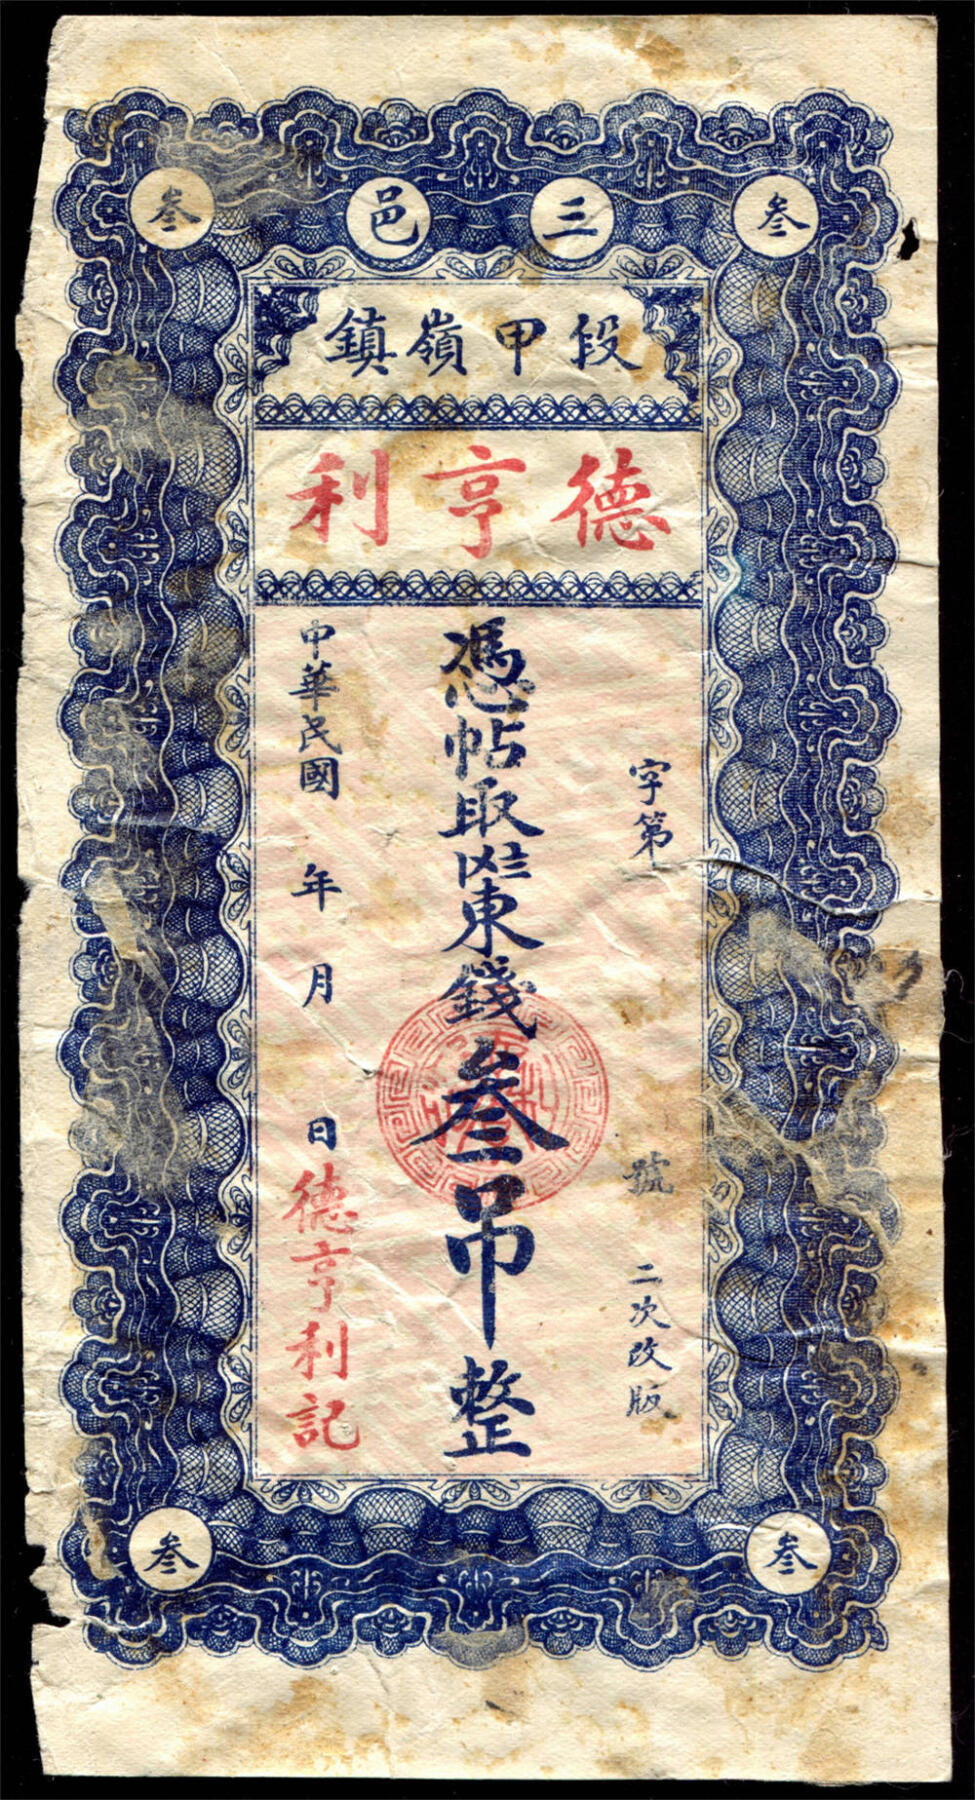 叁 三邑 叁
段甲嶺鎮
德亨利
字第　號　二次改版
憑帖取㘰東錢叁吊整
中華民國　年　月　日德亨利記
叁 叁